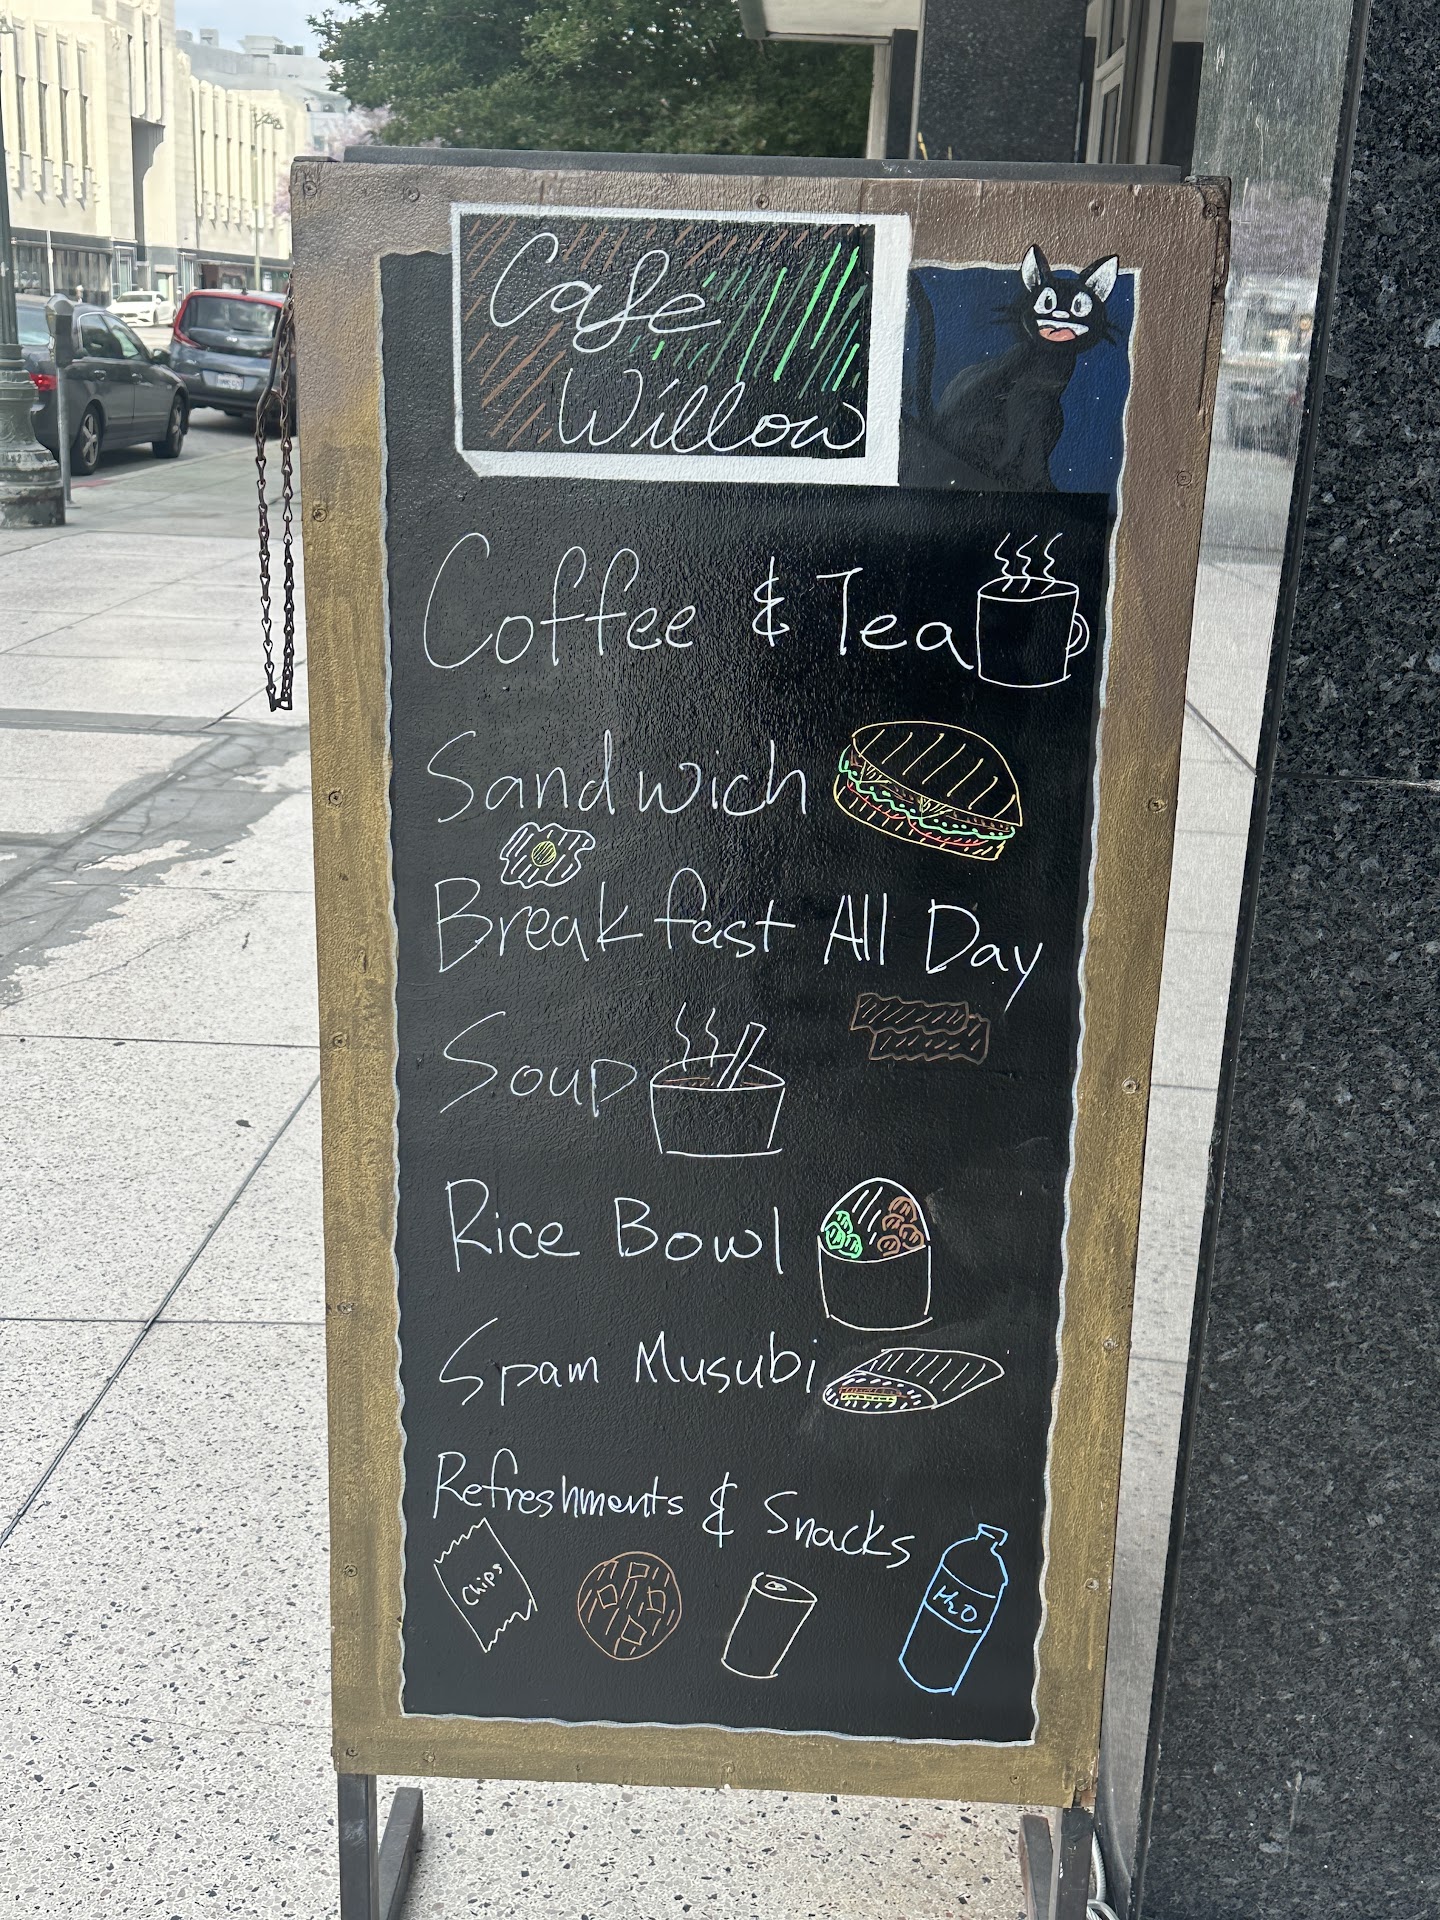 Cafe
Willow
Coffee & Tea
Sandwich
Breakfast All Day
Soup
Rice Bowl
Spam Musubi
Refreshments & Snacks
Chips
H2O